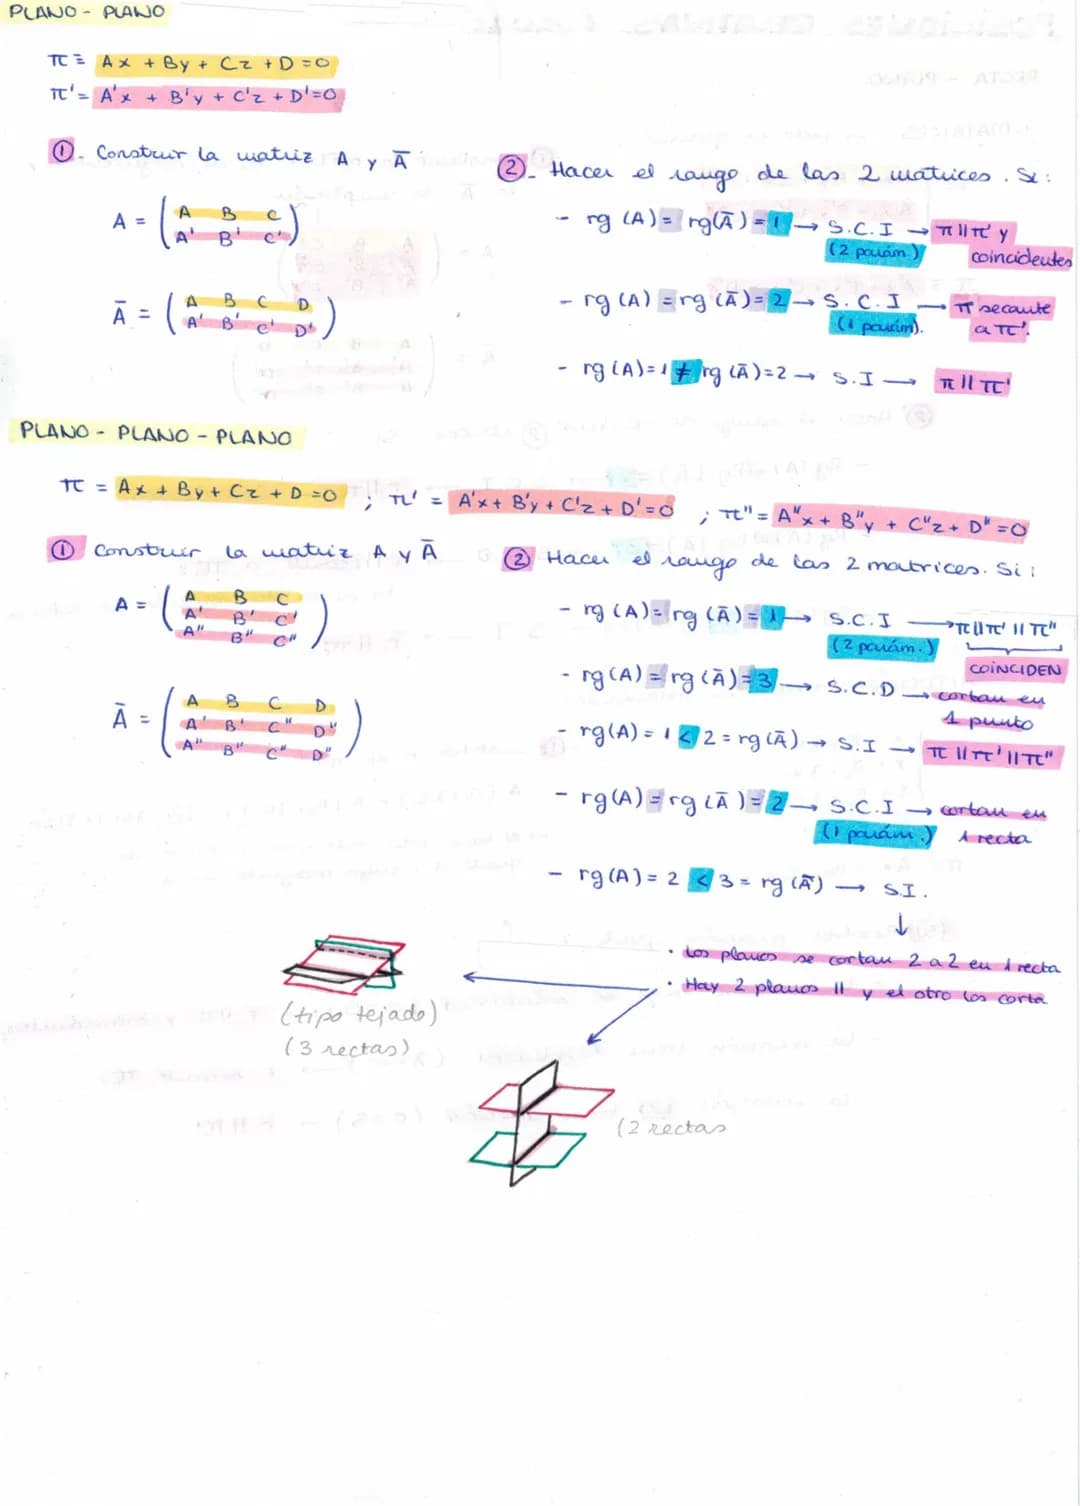 PLANO - PLANO
π ≡ Ax + By + Cz + D = 0
π' = A'x + B'y + C'z + D' = 0
①- Construir la matriz A y Ā
A = ( A B C
A' B' C' )
Ā = ( A B C D
A' B' C' D' )
②- Hacer el rango de las 2 matrices. Si:
- rg (A) = rg (Ā) = 1 → S.C.I → π || π' y
(2 parám.) coincidentes
- rg (A) = rg (Ā) = 2 → S.C.I → π secante
(1 parám). a π'.
- rg (A) = 1 ≠ rg (Ā) = 2 → S.I → π || π'
PLANO - PLANO - PLANO
π = Ax + By + Cz + D = 0 ; π' = A'x + B'y + C'z + D' = 0 ; π'' = A''x + B''y + C''z + D'' = 0
① Construir la matriz A y Ā
A = ( A B C
A' B' C'
A'' B'' C'' )
Ā = ( A B C D
A' B' C'' D''
A'' B'' C'' D'' )
② Hacer el rango de las 2 matrices. Si:
- rg (A) = rg (Ā) = 1 → S.C.I → π || π' || π''
(2 parám.) COINCIDEN
- rg (A) = rg (Ā) = 3 → S.C.D → cortan en
1 punto
- rg (A) = 1 < 2 = rg (Ā) → S.I → π || π' || π''
- rg (A) = rg (Ā) = 2 → S.C.I → cortan en
(1 parám.) 1 recta
- rg (A) = 2 < 3 = rg (Ā) → S.I.
↓
· Los planos se cortan 2 a 2 en 1 recta
· Hay 2 planos || y el otro los corta
(tipo tejado)
(3 rectas)
(2 rectas